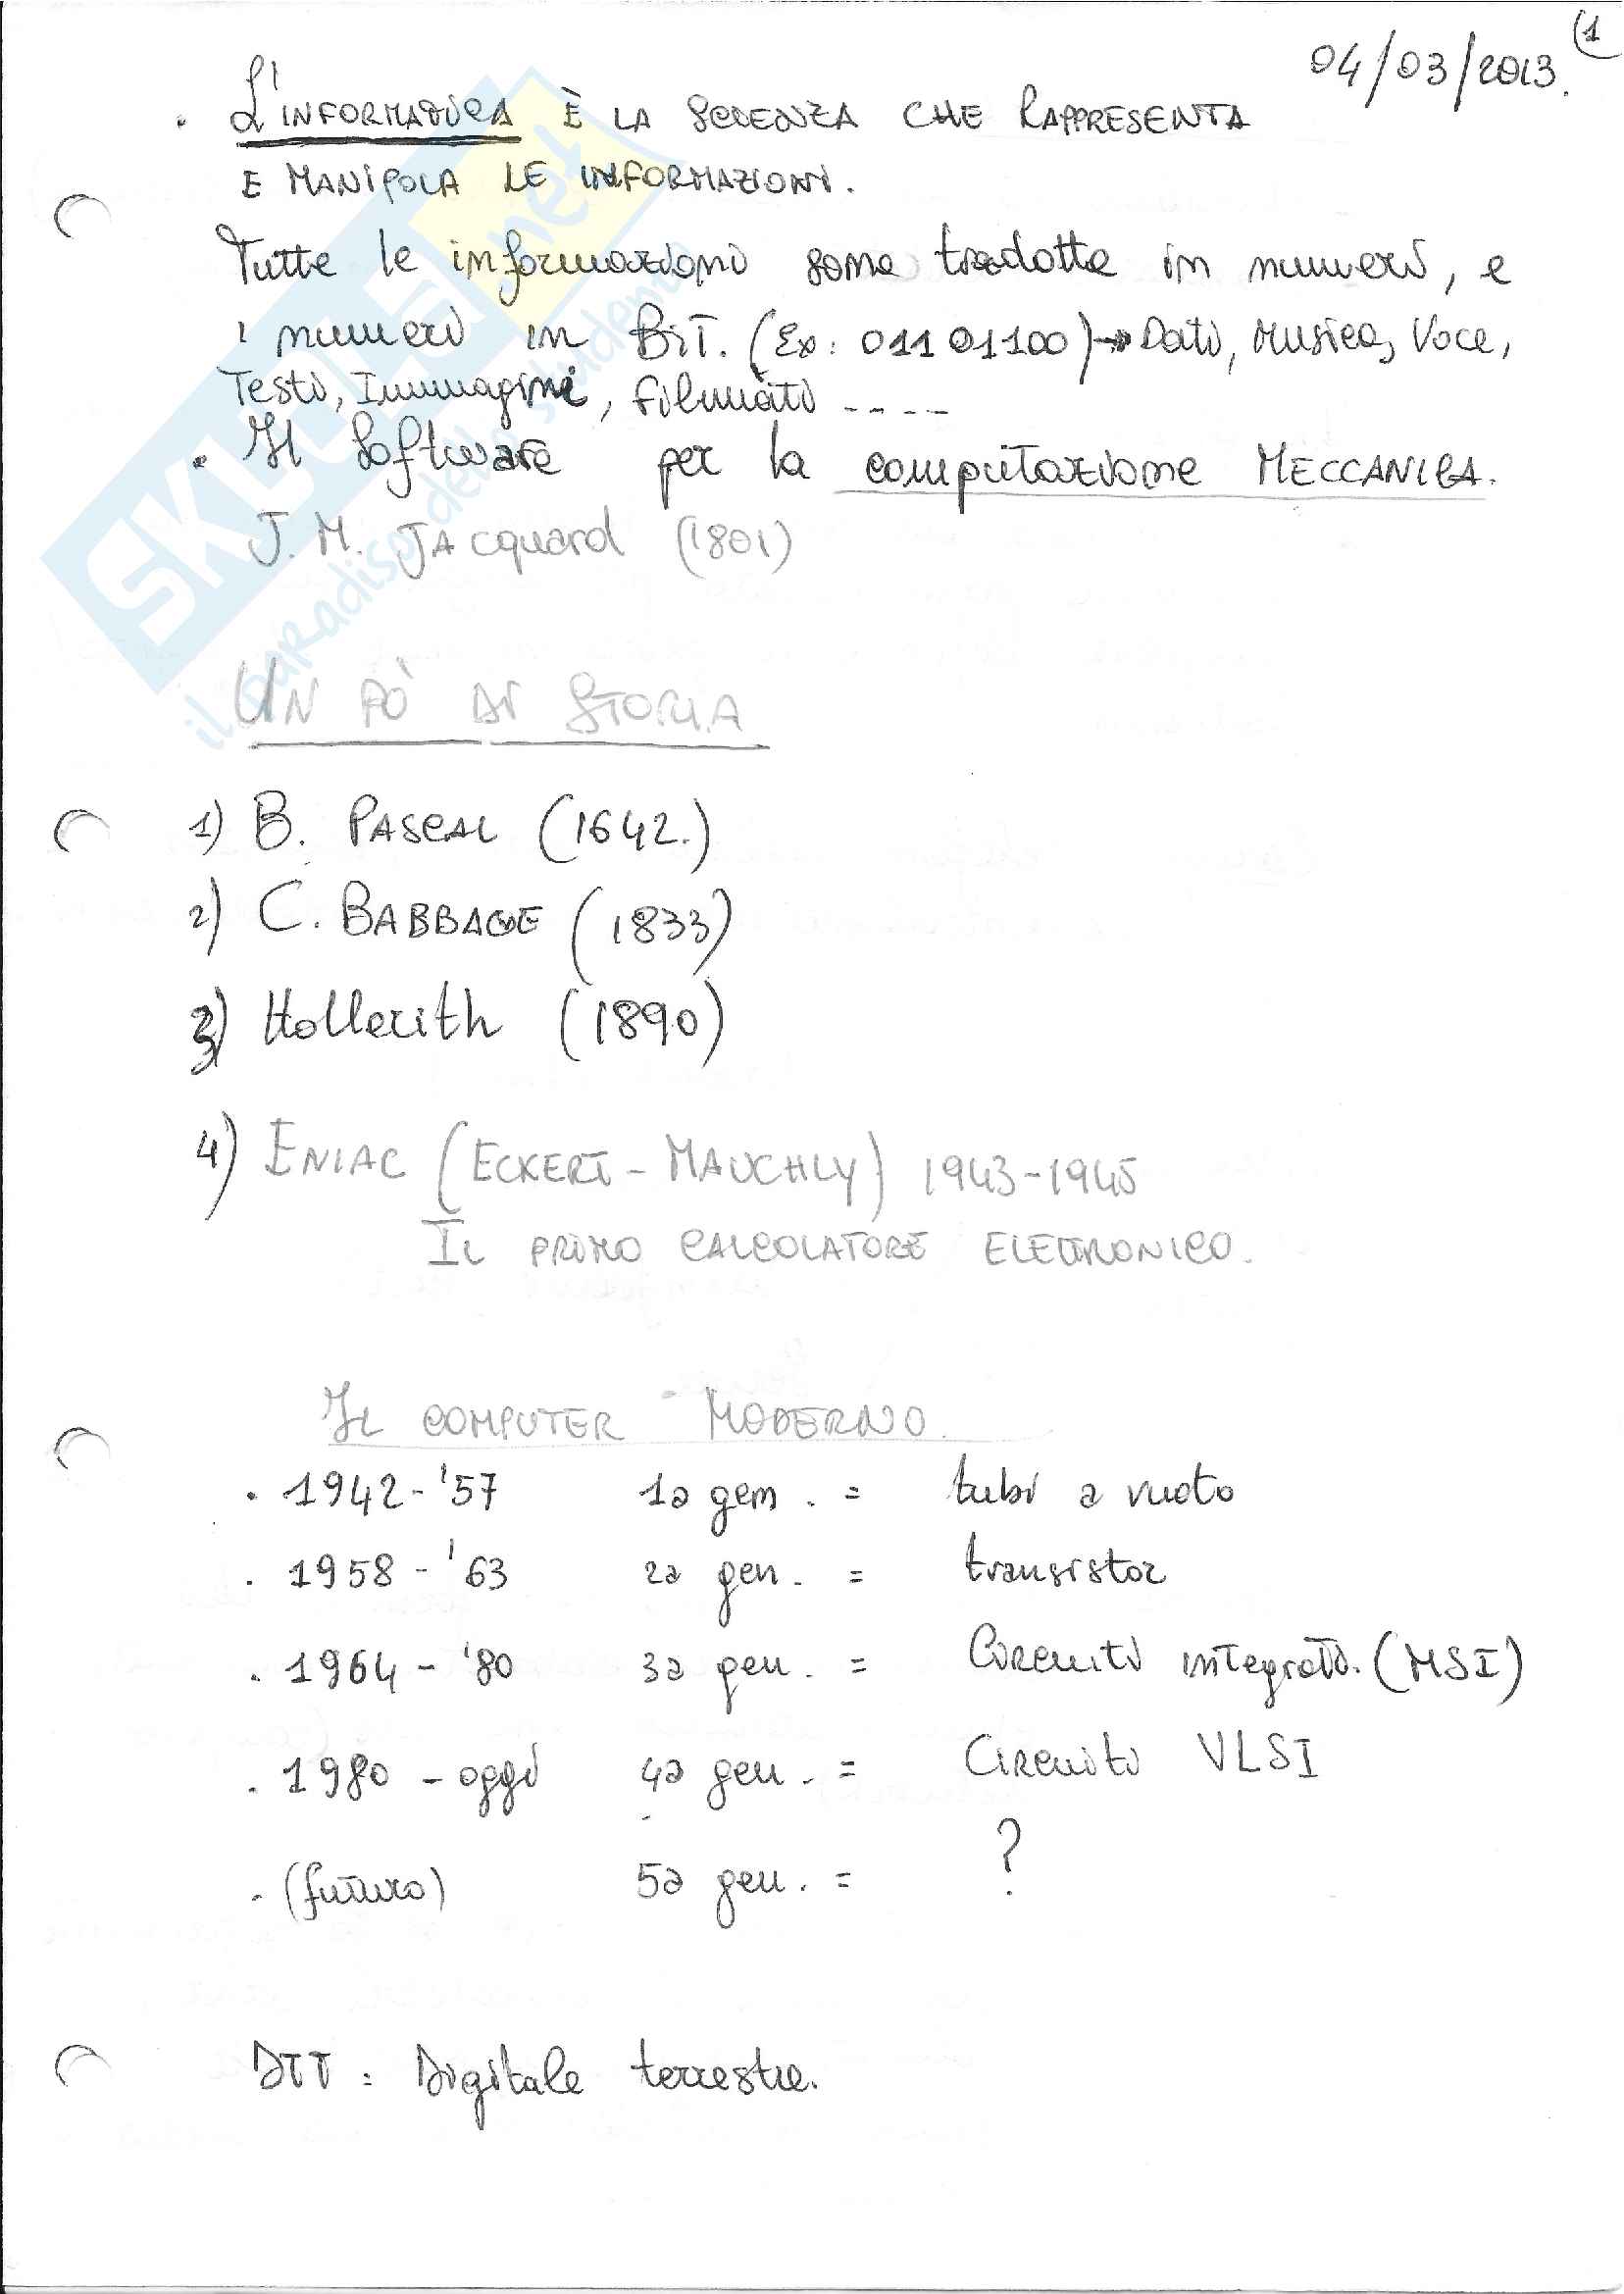 (1
04/03/2013.
. L'INFORMATICA È LA SCIENZA CHE RAPPRESENTA
E MANIPOLA LE INFORMAZIONI.
Tutte le informazioni sono tradotte in numeri, e
i numeri in BIT. (Ex: 01101100)→Dati, Musica, Voce,
Testi, Immagini, filmati ----
. Il Software per la computazione MECCANICA.
J. M. JAcquard (1801)
UN PO' DI STORIA
1) B. PASCAL (1642.)
2) C. BABBAGE (1833)
3) Hollerith (1890)
4) ENIAC (ECKERT-MAUCHLY) 1943-1945
IL PRIMO CALCOLATORE ELETTRONICO.
IL COMPUTER MODERNO.
. 1942-'57 1a gen. = tubi a vuoto
. 1958-'63 2a gen. = transistor
. 1964-'80 3a gen. = Circuiti integrati. (MSI)
. 1980-oggi 4a gen. = Circuiti VLSI
- (futuro) 5a gen. = ?
DTT = Digitale terrestre.
SKUOLA.net
il paradiso dello studente